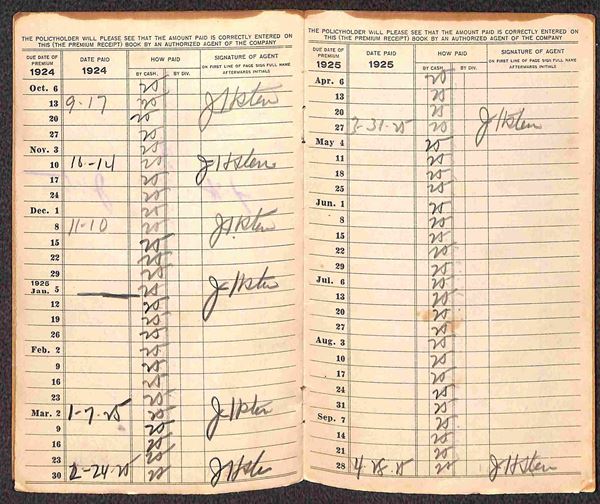 THE POLICYHOLDER WILL PLEASE SEE THAT THE AMOUNT PAID IS CORRECTLY ENTERED ON
THIS (THE PREMIUM RECEIPT) BOOK BY AN AUTHORIZED AGENT OF THE COMPANY
DUE DATE OF PREMIUM 1924 DATE PAID 1924 HOW PAID BY CASH. BY DIV. SIGNATURE OF AGENT
ON FIRST LINE OF PAGE SIGN FULL NAME AFTERWARDS INITIALS
Oct. 6 25
13 9-17 25
20 25
27 25
Nov. 3 25
10 25
17 25
24 25
Dec. 1 25
8 11-10 25
15 25
22 25
29 25
1925
Jan. 5 25
12 25
19 25
26 25
Feb. 2 25
9 25
16 25
Mar. 2 1-7-25 25
9 25
16 25
23 25
30 2-24-25 25
THE POLICYHOLDER WILL PLEASE SEE THAT THE AMOUNT PAID IS CORRECTLY ENTERED ON
THIS (THE PREMIUM RECEIPT) BOOK BY AN AUTHORIZED AGENT OF THE COMPANY
DUE DATE OF PREMIUM 1925 DATE PAID 1925 HOW PAID BY CASH. BY DIV. SIGNATURE OF AGENT
ON FIRST LINE OF PAGE SIGN FULL NAME AFTERWARDS INITIALS
Apr. 6 25
13 25
20 25
27 3-31-25 25
May 4 25
11 25
18 25
25 25
Jun. 1 25
8 25
15 25
22 25
29 25
Jul. 6 25
13 25
20 25
27 25
Aug. 3 25
10 25
17 25
24 25
31 25
Sep. 7 25
14 25
21 25
28 4-28-25 25